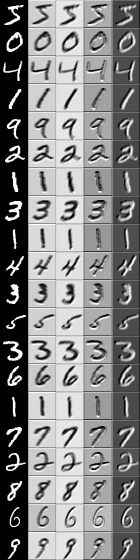 5 5 5 5 5
0 0 0 0 0
4 4 4 4 4
1 1 1 1 1
9 9 9 9 9
2 2 2 2 2
1 1 1 1 1
3 3 3 3 3
1 1 1 1 1
4 4 4 4 4
3 3 3 3 3
5 5 5 5 5
3 3 3 3 3
6 6 6 6 6
1 1 1 1 1
7 7 7 7 7
2 2 2 2 2
8 8 8 8 8
6 6 6 6 6
9 9 9 9 9